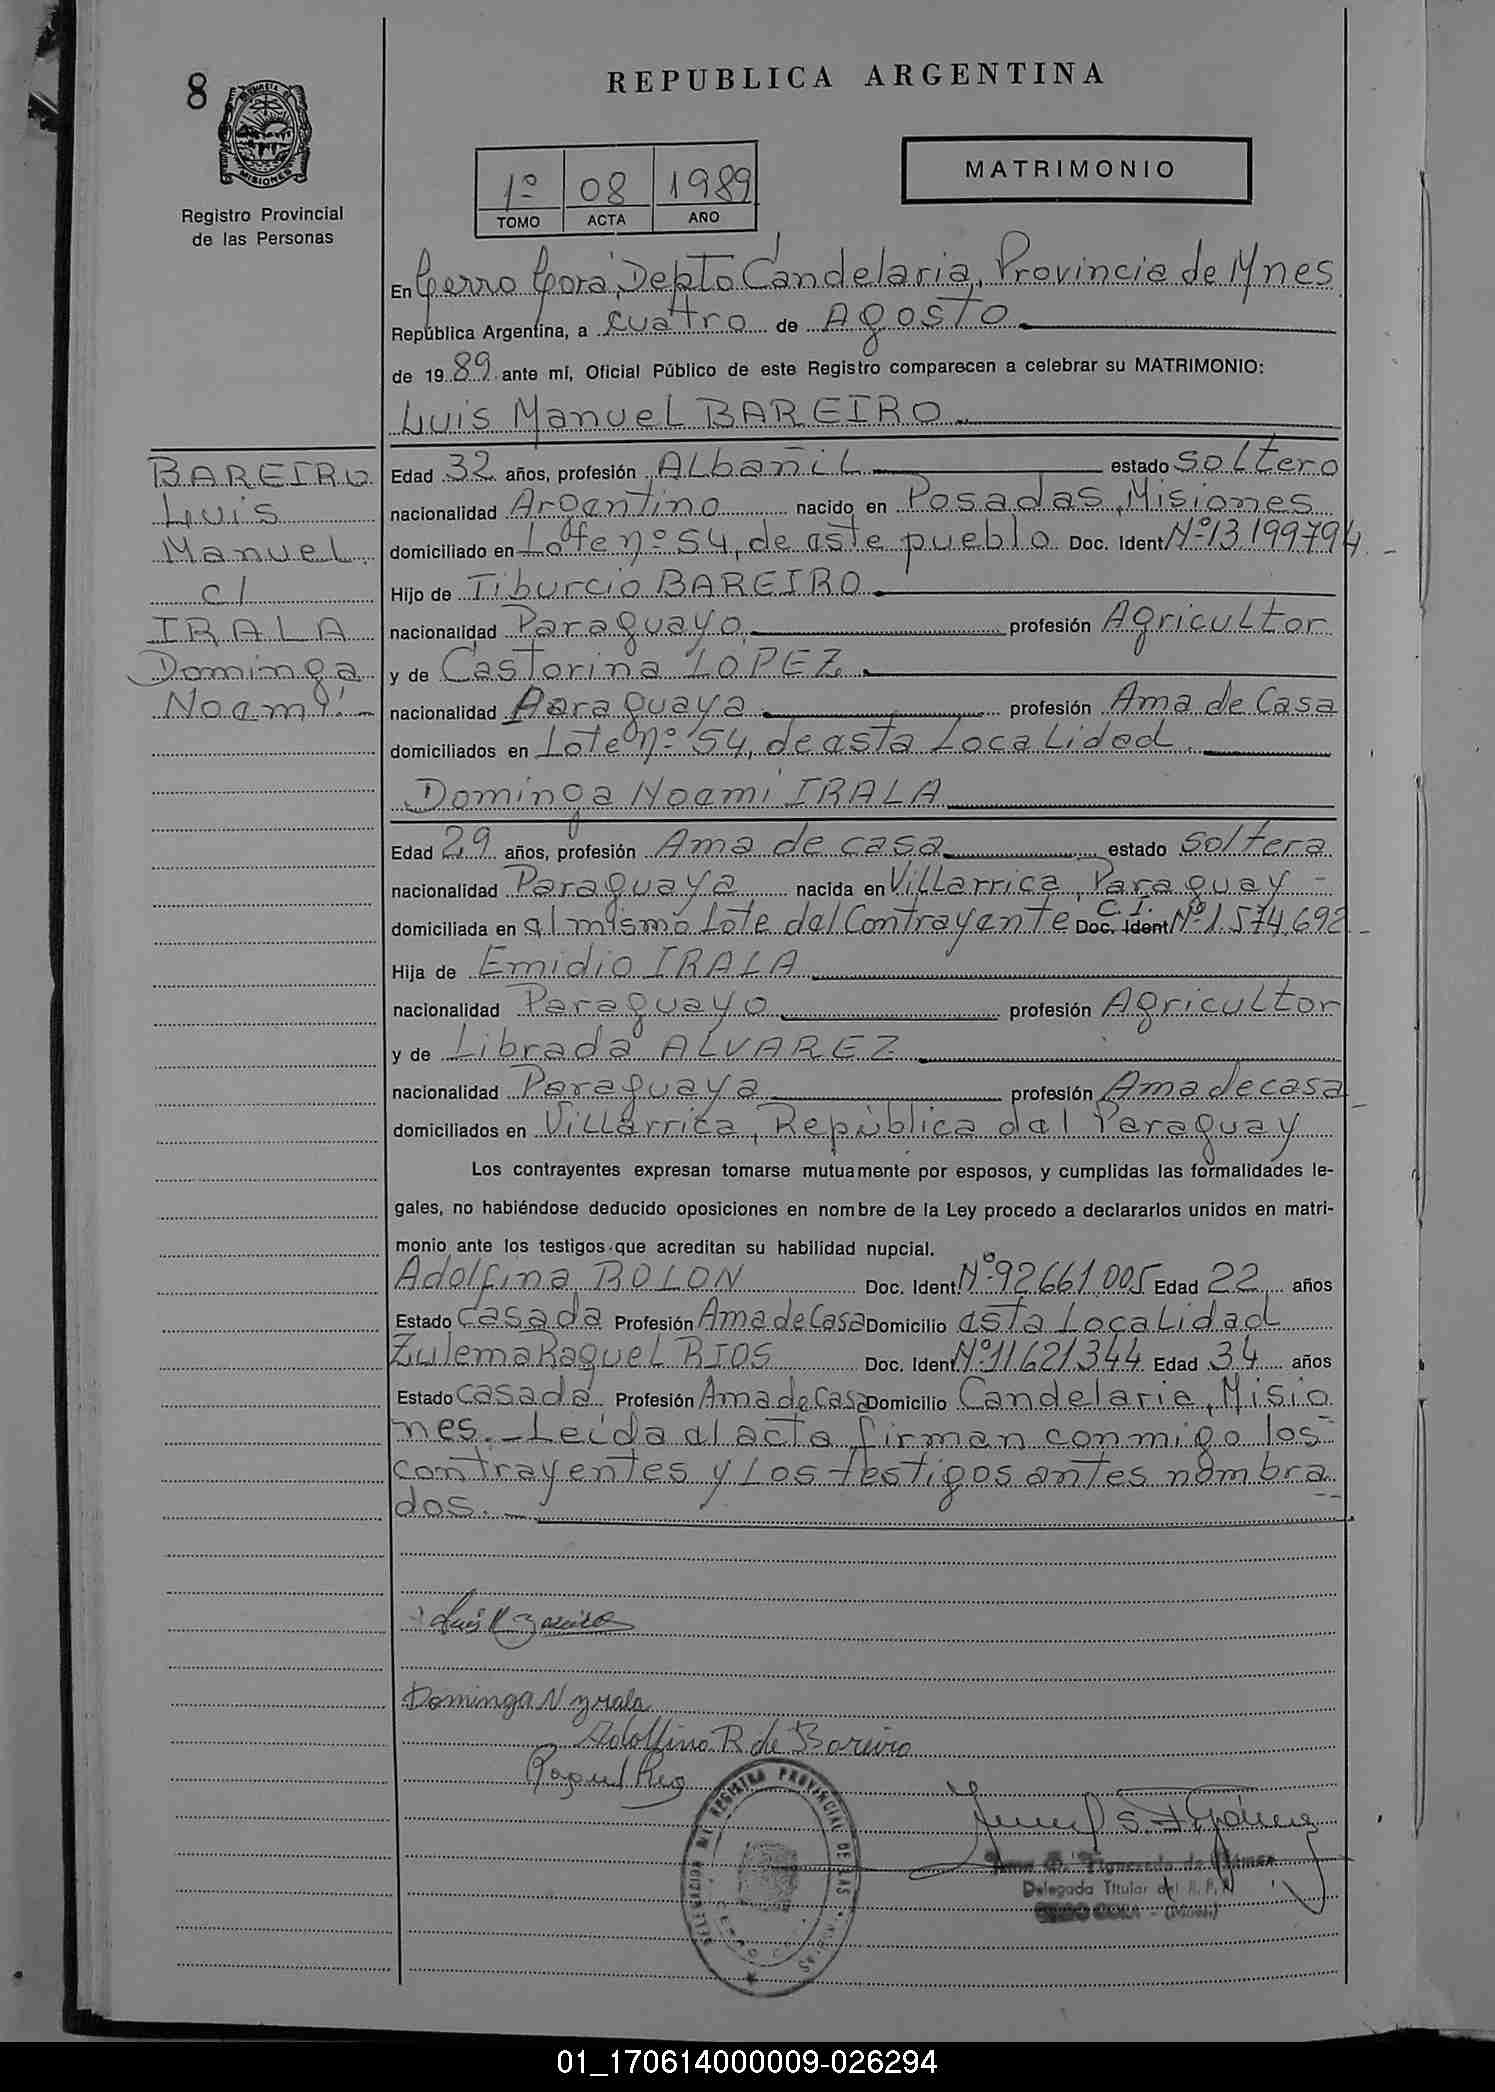 8
REPUBLICA ARGENTINA
MISIONES
Registro Provincial
de las Personas
1º 08 1989
TOMO ACTA AÑO
MATRIMONIO
En Cerro Corá, Depto Candelaria, Provincia de Mnes
República Argentina, a cuatro de Agosto
de 1989 ante mí, Oficial Público de este Registro comparecen a celebrar su MATRIMONIO:
Luis Manuel BAREIRO
BAREIRO
Luis
Manuel
c/
IRALA
Dominga
Noemí.-
Edad 32 años, profesión Albañil estado soltero
nacionalidad Argentino nacido en Posadas, Misiones
domiciliado en Lote nº 54, de este pueblo Doc. Ident Nº 13.199794.-
Hijo de Tiburcio BAREIRO
nacionalidad Paraguayo profesión Agricultor
y de Castorina LOPEZ
nacionalidad Paraguaya profesión Ama de Casa
domiciliados en Lote nº 54, de esta Localidad.
Dominga Noemi IRALA
Edad 29 años, profesión Ama de casa estado soltera
nacionalidad Paraguaya nacida en Villarrica, Paraguay -
domiciliada en el mismo Lote del Contrayente C.I. Doc. Ident Nº 1.574.692.-
Hija de Emidio IRALA
nacionalidad Paraguayo profesión Agricultor
y de Librada ALVAREZ
nacionalidad Paraguaya profesión Ama de casa
domiciliados en Villarrica, República del Paraguay
Los contrayentes expresan tomarse mutuamente por esposos, y cumplidas las formalidades le-
gales, no habiéndose deducido oposiciones en nombre de la Ley procedo a declararlos unidos en matri-
monio ante los testigos que acreditan su habilidad nupcial.
Adolfina ROLON Doc. Ident. Nº 92661.005 Edad 22 años
Estado casada Profesión Ama de Casa Domicilio esta Localidad
Zulema Raquel RIOS Doc. Ident. Nº 11621344 Edad 34 años
Estado casada Profesión Ama de Casa Domicilio Candelaria, Misio
nes.- Leída el acta firman conmigo los
contrayentes y los testigos antes nombra
dos.-
Luis M Bareiro
Dominga N Yrala
Adolfina R de Bareiro
REGISTRO PROVINCIAL DE LAS
Delegada Titular del R. P.
01_170614000009-026294